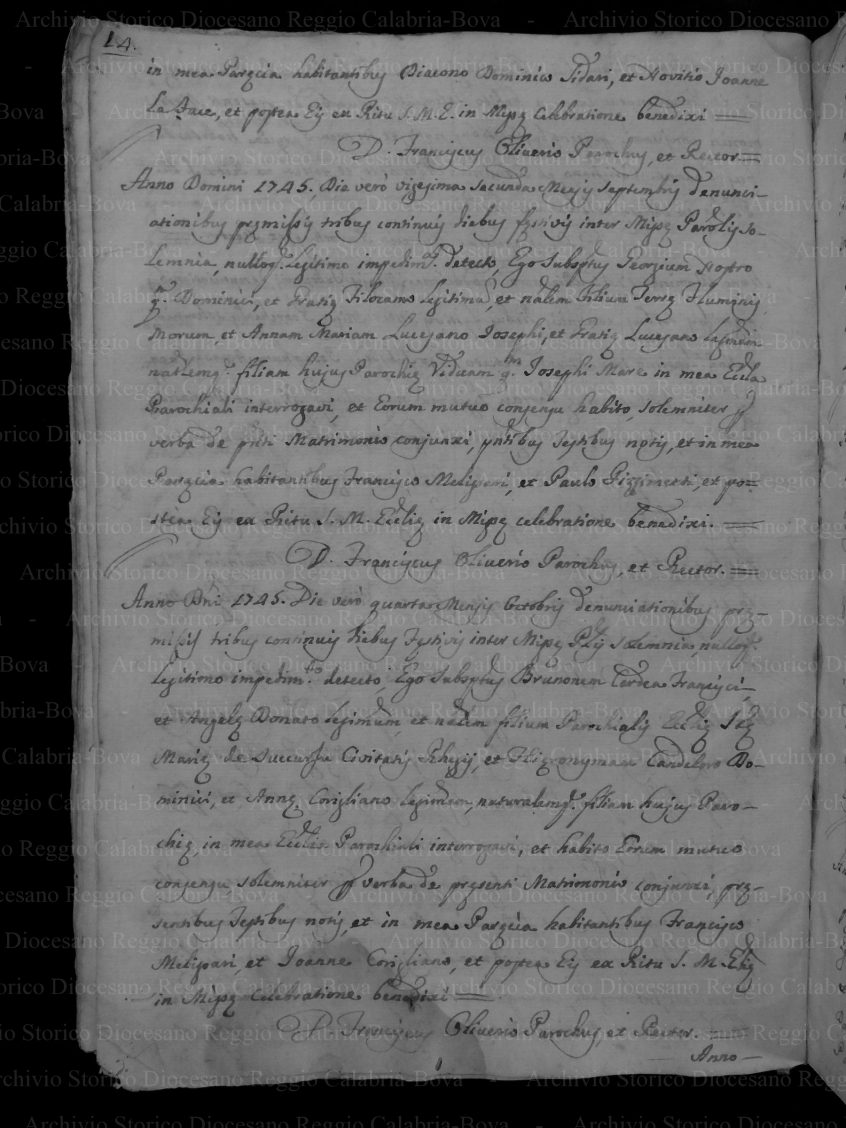 14.
in mea Parœcia habitantibus Diacono Dominico Sidari, et Novitio Joanne
La Face, et postea Eis ex Ritu S. M. E. in Missę Celebratione benedixi
D. Franciscus Oliverio Parochus, et Rector.
Anno Domini 1745. Die verò vigesima secunda Mensis Septembris denunci-
ationibus pręmissis tribus continuis diebus festivis inter Missę Parolis So-
lemnia, nulloq. legitimo impedimto. detecto, Ego Subsptus Georgium Nostro
qm. Dominici, et Gratię Filocamo legitimū, et nalem Filium Terrę Fluminis
Morum et Annam Mariam Lucisano Josephi, et Gratię Lucisano legimam
natlemq. filiam hujus Parochię Viduam qm. Josephi Mare in mea Eccla
Parochiali interrogavi, et Eorum mutuo consensu habito, solemniter p
verba de pnti Matrimonio conjunxi, pntibus Testibus notis, et in mea
Parœcia habitantibus Francisco Melissari, et Paulo Pizzimenti, et po-
stea Eis ex Ritu S. M. Ecclię in Missę celebratione benedixi.
D. Franciscus Oliverio Parochus, et Rector.
Anno Dni 1745. Die verò quarta Mensis Octobris denunciationibus prę-
missis tribus continuis diebus Festivis inter Missę Plis solemnia nulloq.
legitimo impedimto. detecto, Ego Subsptus Brunonem Cordea Francisci
et Angelę Donato legimum, et nalem filium Parochialis Ecclię Stę
Marię de Succursu Civitatis Rhegij, et Hięronymam Candeloro Do-
minici, et Annę Corigliano legimam, naturalemq. filiam hujus Paro-
chię in mea Ecclia Parochiali interrogavi, et habito Eorum mutuo
consensu solemniter p verba de pręsenti Matrimonio conjunxi, prę-
sentibus Testibus notis, et in mea Parœcia habitantibus Francisco
Melissari, et Joanne Corigliano, et postea Eis ex Ritu S. M. Eclię
in Missę Celebratione benedixi
D. Franciscus Oliverio Parochus, et Rector.
Anno